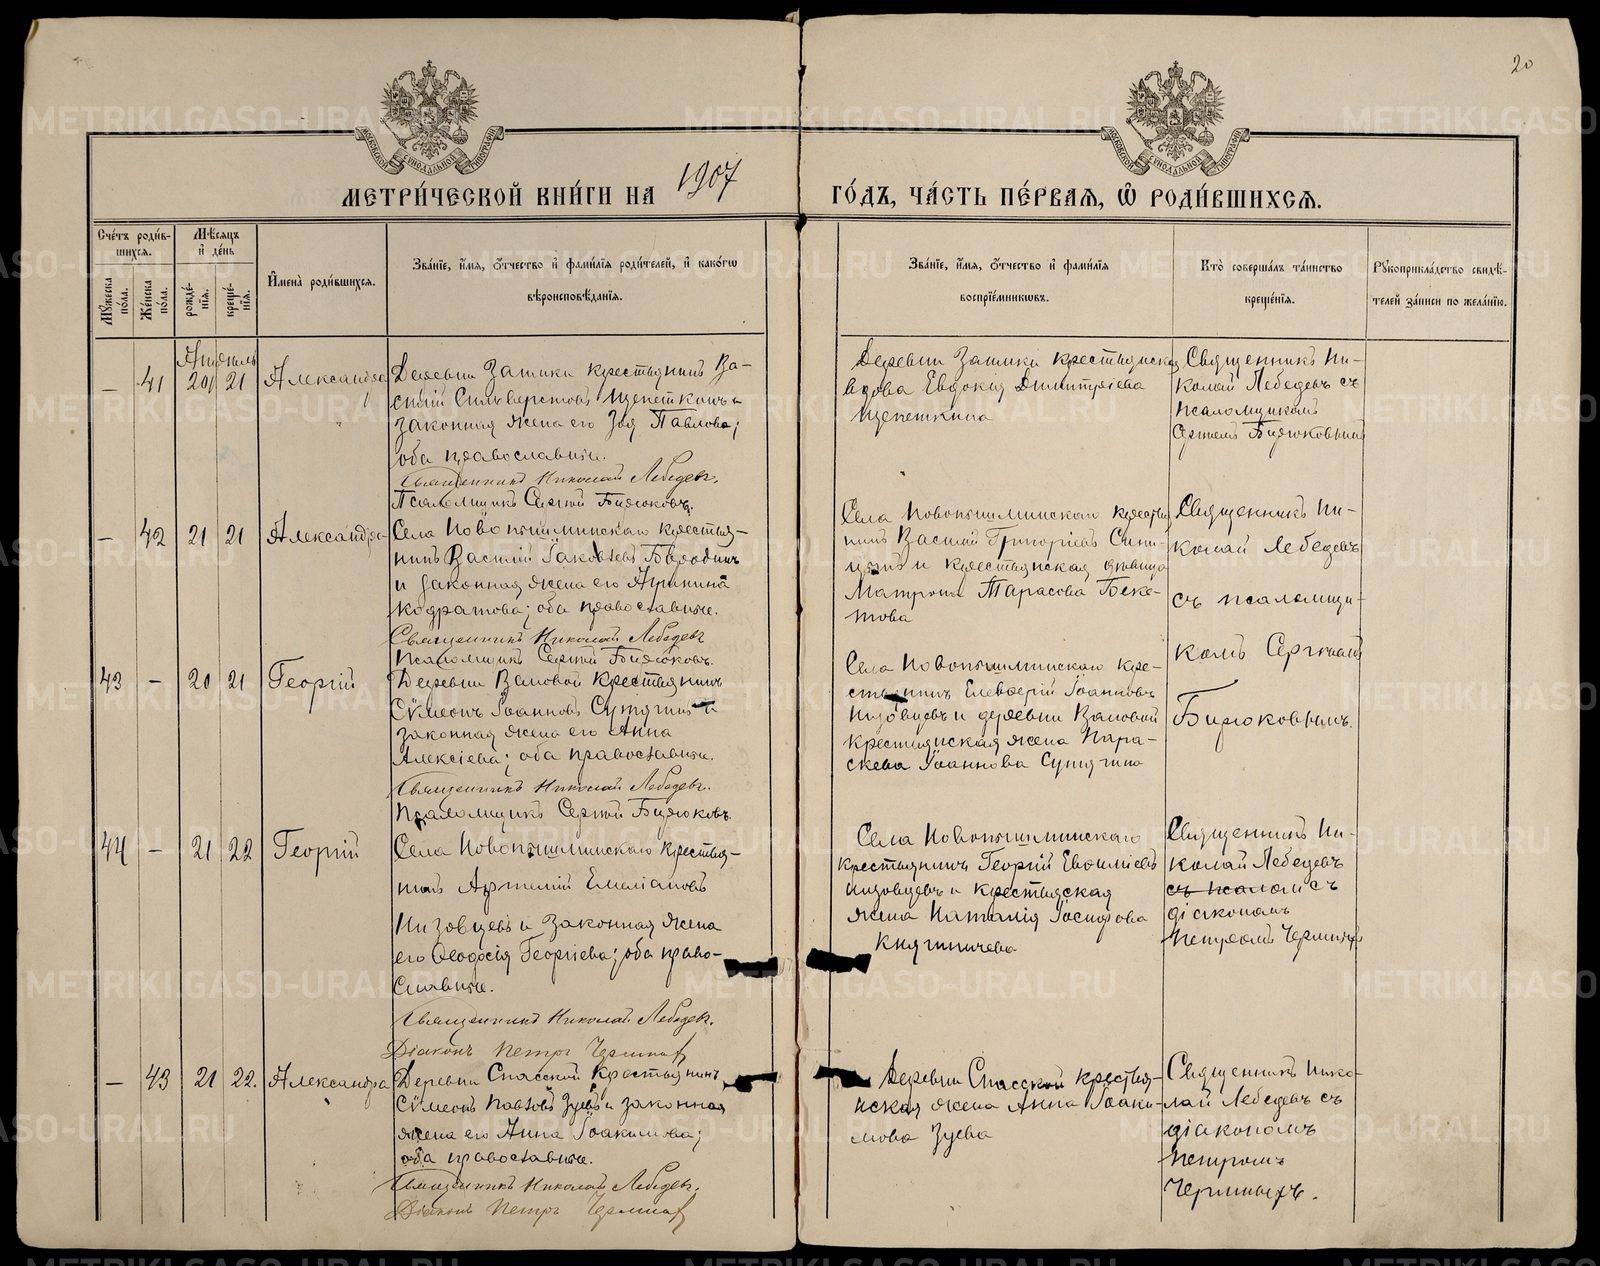 20
МЕТРИ́ЧЕСКОЙ КНИ́ГИ НА 1907 ГО́ДЪ, ЧА́СТЬ ПЕ́РВАЯ, Ѿ РОДИ́ВШИХСЯ.
Сче́тъ роди́вшихся.
Му́жеска по́ла.
Же́нска по́ла.
Мѣ́сяцъ и де́нь
рожде́нїя.
креще́нїя.
И҆мена̀ роди́вшихся.
Зва́нїе, и҆́мя, ѻ҆́тчество и҆ фами́лїя роди́телей, и҆ како́гѡ
вѣроисповѣ́данїя.
Зва́нїе, и҆́мя, ѻ҆́тчество и҆ фами́лїя
воспрїе́мниковъ.
Кто̀ соверша́лъ та́инство
креще́нїя.
Рꙋкоприкла́дство свидѣ́-
телей за́писи по жела́нїю.
Апрѣль
— 41 20 21 Александра
Деревни Заимки крестьянинъ Ва-
силій Сильверстовъ Щепеткинъ и
законная жена его Зоя Павлова;
оба православные.
Священникъ Николай Лебедевъ.
Псаломщикъ Сергій Бирюковъ.
Деревни Заимки крестьянская
вдова Евдокия Димитріева
Щепеткина
Священникъ Ни-
колай Лебедевъ съ
псаломщикомъ
Бирюковымъ
— 42 21 21 Александра
Села Новопышминскаго крестья-
нинъ Василій Іаковлевъ Бороdинъ
и законная жена его
Кодратова; оба православные.
Священникъ Николай Лебедевъ
Псаломщикъ Сергій Бирюковъ.
Села Новопышминскаго крестья-
нинъ Василій Григоріевъ Сини-
цынъ и крестьянская дѣвица
Матрона Тарасова Беке-
това
Священникъ Ни-
колай Лебедевъ
съ псаломщи-
комъ Сергіемъ
Бирюковымъ.
43 — 20 21 Георгій
Деревни Валовой крестьянинъ
Сѵмеонъ Іоанновъ Сутягинъ и
законная жена его Анна
Алексіева; оба православные.
Священникъ Николай Лебедевъ.
Псаломщикъ Сергій Бирюковъ.
Села Новопышминскаго кре-
стьянинъ Елевѳерій Іоанновъ
Низовцевъ и деревни Валовой
крестьянская жена Пара-
скева Іоаннова Сутягина
44 — 21 22 Георгій
Села Новопышминскаго крестья-
нинъ Артемій Емеліановъ
Низовцевъ и законная жена
его Ѳеодосія Георгіева; оба право-
славные.
Священникъ Николай Лебедевъ.
Діаконъ Петръ Черемныхъ
Села Новопышминскаго
крестьянинъ Георгій Евѳиміевъ
Низовцевъ и крестьяская
жена Наталія Іосифова
Княгиничева
Священникъ Ни-
колай Лебедевъ
съ псалом съ
діакономъ
Петромъ Черемныхъ
— 43 21 22. Александра
Деревни Спасской крестьянинъ
Сѵмеонъ Павловъ Зуевъ и законная
жена его Анна Іоакимова;
оба православные.
Священникъ Николай Лебедевъ.
Діаконъ Петръ Черемныхъ
Деревни Спасской крестья-
нская жена Анна Іоаки-
мова Зуева
Священникъ Нико-
лай Лебедевъ съ
діакономъ
Петромъ
Черемныхъ.
METRIKI.GASO-URAL.RU